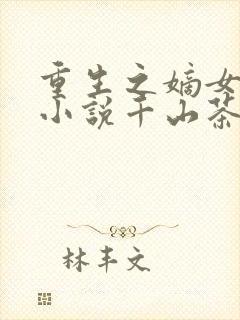 重生之嫡女
小说千山茶
林丰文